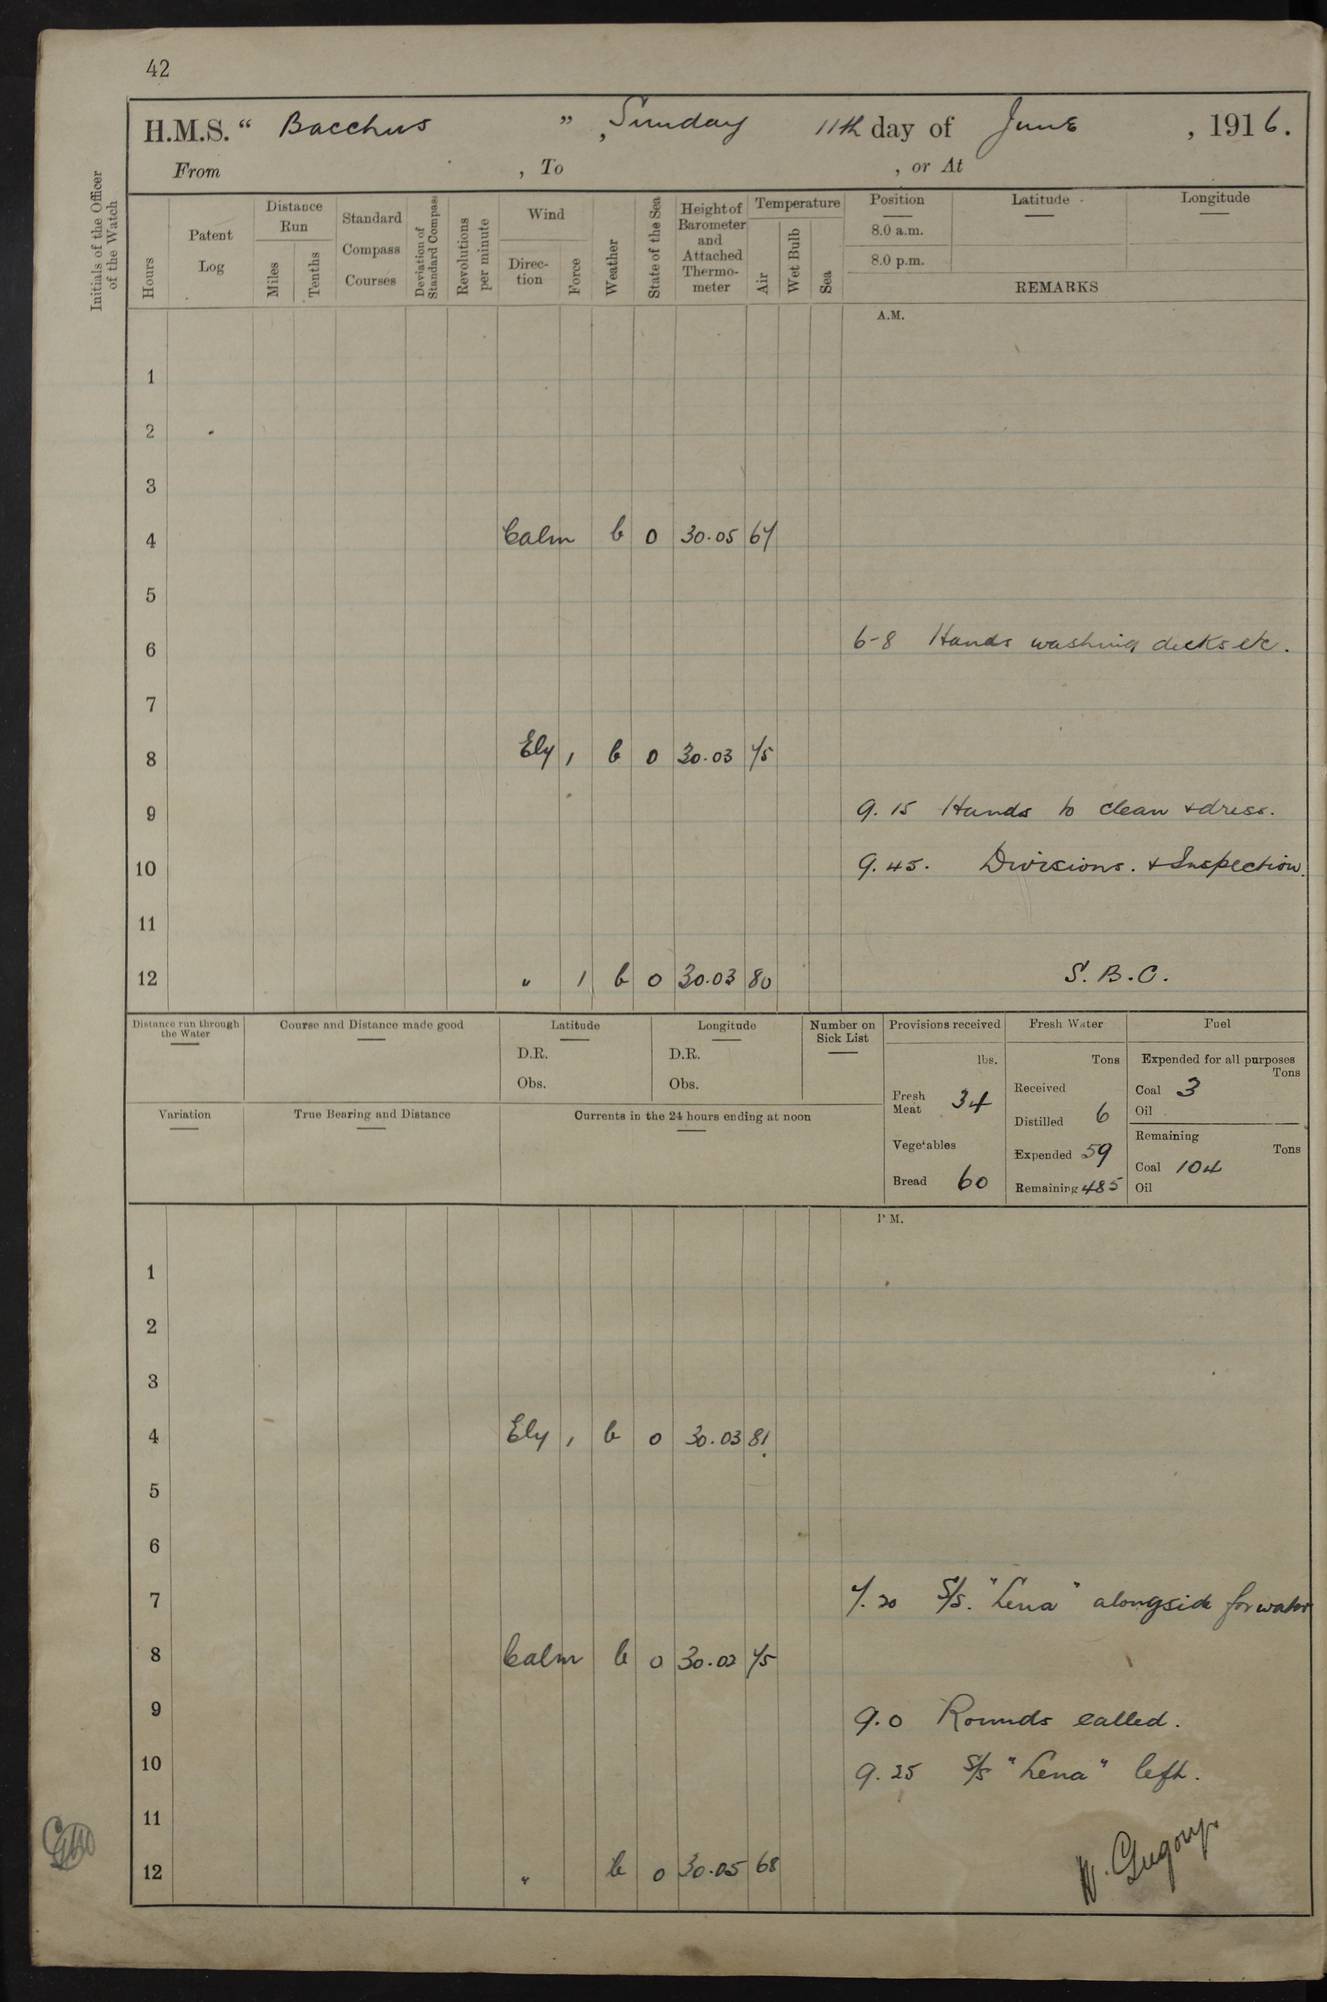 42
H.M.S. " Bacchus " , Sunday 11th day of June , 1916.
From , To , or At
Initials of the Officer of the Watch
Hours
Patent Log
Distance Run
Miles
Tenths
Standard Compass Courses
Deviation of Standard Compass
Revolutions per minute
Wind
Direction
Force
Weather
State of the Sea
Height of Barometer and Attached Thermometer
Temperature
Air
Wet Bulb
Sea
Position
8.0 a.m.
8.0 p.m.
Latitude
Longitude
REMARKS
A.M.
1
2
3
4 Calm b 0 30.05 67
5
6 6-8 Hands washing decks etc.
7
8 Ely 1 b 0 30.03 75
9 9.15 Hands to clean & dress.
10 9.45. Divisions. & Inspection.
11
12 " 1 b 0 30.03 80 S.B.C.
Distance run through the Water
Course and Distance made good
Latitude
D.R.
Obs.
Longitude
D.R.
Obs.
Number on Sick List
Provisions received
lbs.
Fresh Meat 34
Vegetables
Bread 60
Fresh Water
Tons
Received
Distilled 6
Expended 59
Remaining 485
Fuel
Expended for all purposes
Tons
Coal 3
Oil
Remaining
Tons
Coal 104
Oil
Variation
True Bearing and Distance
Currents in the 24 hours ending at noon
P.M.
1
2
3
4 Ely 1 b 0 30.03 81
5
6
7 7.20 S/S. "Lena" alongside for water
8 Calm b 0 30.02 75
9 9.0 Rounds called.
10 9.25 S/S "Lena" left.
11
12 " b 0 30.05 68
W. Gregory.